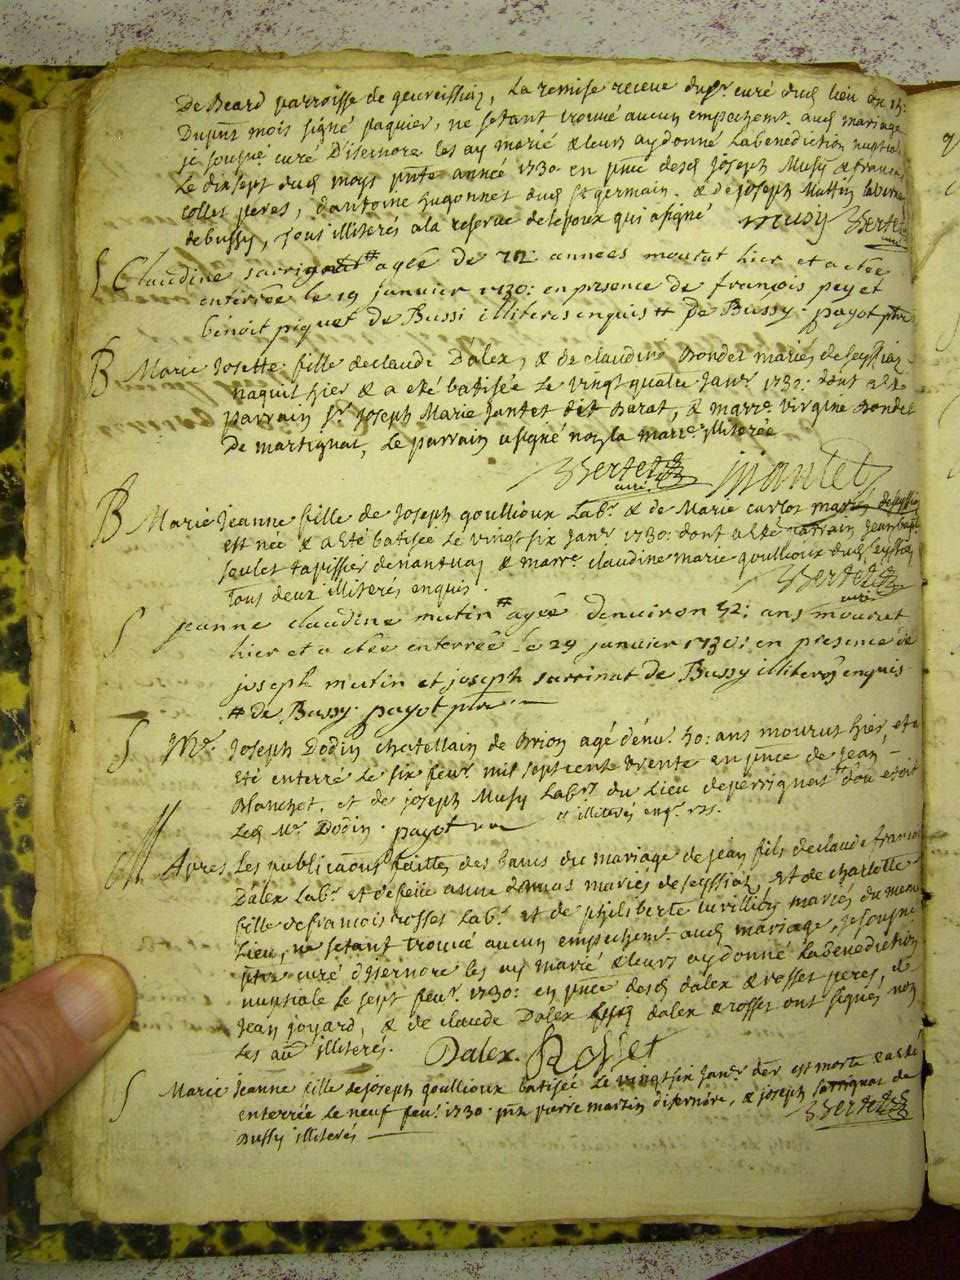 De Beard parroisse de geureissiaz, La remise receue du sr curé dud lieu
Dupnt mois signé paquier, ne setant trouvé aucun empechemt. aud mariage
je sousné curé D'isernore les ay marié & leurs ay donné La benediction nuptiale
Le dixsept dud moys pnte année 1730 en pnce desd Joseph Musy & francois
collet peres, d'antoine hugonnet dud St germain. & de joseph Mattin
debussy, Tous illiterés a la reserve de lepoux qui a signé musy Bertet
curé
S Claudine sarrignat # agée de 72 années mourut hier et a etée
enterrée le 19 janvier 1730: en presence de françois peyet
benoit piquet de Bussi illiteres enquis # de Bussy. payot ptre
B Marie Josette fille de claude D'alex, & de claudine Bondet mariés de seyssiaz
naquit hier & a eté batisée Le vingt quatre Janr. 1730: dont a eté
parrain sr. Joseph Marie Jantet dit Barat, & marre. virginie Bondet
De martignat, Le parrain a signé non la marre. illiterée
Bertet jjantet
curé
B Marie Jeanne fille de Joseph goullioux Labr. & de Marie carlos mariés de seyssiaz
est née & a eté batisée Le vingt six Janr. 1730: dont a eté parrain Jean bapt.
soulet tapissier de nantuaz & marre. claudine marie goullioux dud seyssiaz
Tous deux illiterés enquis. Bertet
curé
S jeanne claudine mutin # agée denuiron 52: ans mourut
hier et a etée enterrée le 29 januier 1730: en presence de
joseph mutin et joseph sarrinat de Bussy illiterés enquis
# de Bussy. payot ptre
S Mr. Joseph Dodin chatellain de Brion agé d'enu. 50: ans mourut hier, et a
eté enterré le six feur. mil sept cent trente en pnce de Jean
Blanchet, et de joseph Musy Labrs. du Lieu de perrignat d'ou etoit
Led Mr. Dodin. payot illiterés enq. rs.
Apres Les publicaons faittes des bancs du mariage de jean fils de claude francois
Dalex Labr. et de feüe anne damas mariés de seyssiaz, et de charlotte
fille de francois rosset Labr. et de philiberte curillion mariés du meme
Lieu, ne setant trouué aucun empechemt. aud mariage, Je sousné
ptre curé disernore les ay marié & leurs ay donné La benediction
nuptiale Le sept feur. 1730: en pnce desd dalex & rosset peres, de
Jean joyard, & de claude Dalex Lesd dalex & rosset ont signés non
Les aues illiterés. Dalex. Rosset
S Marie Jeanne fille de joseph goullioux batisée Le vingt six Janr. der est morte & a eté
enterrée Le neuf feur. 1730 pnt pierre martin disernore, & joseph sarrignat de
Bussy illiterés Bertet